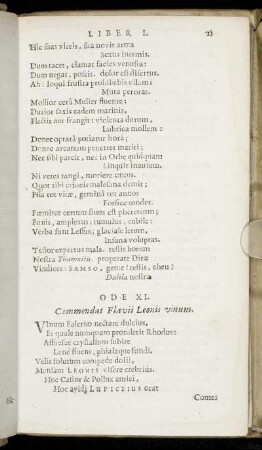 LIBER I.
Hic suas vireis, sua novit arma
Sexus inermis.
Dum tacet, clamat facies venusta:
Dum negat, poscit. dolor est disertus.
Ah! loqui frustra prohibebis ullam:
Muta perorat.
Mollior cerâ Mulier fluente:
Durior saxis eadem marinis,
Flectit aut frangit: violenta dorum,
Lubrica mollem:
Donec optatâ potiatur horâ;
Donec arcanum penetret mariti;
Nec sibi parcit, nec in Orbe quidquam
Linquit inausum.
Ni vetes tangi, moriere cæcus.
Quot tibi crineis malesana demit;
Fila tot vitæ, geminâ tot annos
Forfice tondet.
Fœminæ certum suus est pheretrum;
Funis, amplexus; tumulus, cubile:
Verba sunt Lessus, glaciale letum,
Insana voluptas.
Testor expertus mala. testis horum
Nostra properate Diræ
Vindices: SAMSO, genæ! testis, eheu!
Dalila nostra
ODE XI.
Commendat Flavii Leonis vinum.
VInum Falerno nectare dulcius,
Et quale numquam protulerit Rhodos:
Assuesce crystallum subire
Lenè fluens, phialasque fundi.
Velis solutum compede dolii,
Mensam LEONIS visere crebriùs.
Hoc Castor & Pollux amici,
Hoc avidi LUPICDIUS orat
Comes